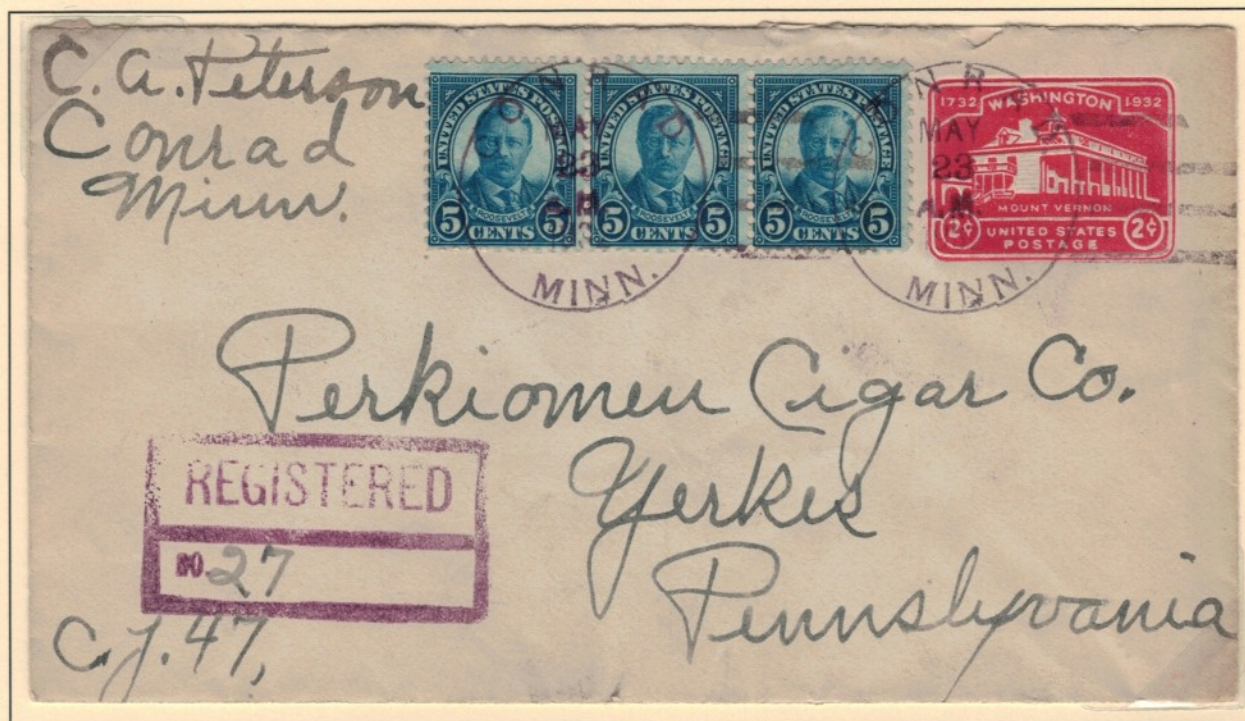 C. A. Peterson
Conrad
Minn.
UNITED STATES POSTAGE
ROOSEVELT
5 CENTS 5
UNITED STATES POSTAGE
ROOSEVELT
5 CENTS 5
UNITED STATES POSTAGE
ROOSEVELT
5 CENTS 5
MAY
23
MINN.
1732 WASHINGTON 1932
MOUNT VERNON
2¢ UNITED STATES 2¢
POSTAGE
MAY
23
A.M.
MINN.
Perkiomen Cigar Co.
Yerkes
Pennslyvania
REGISTERED
NO. 27
C. J. 47,